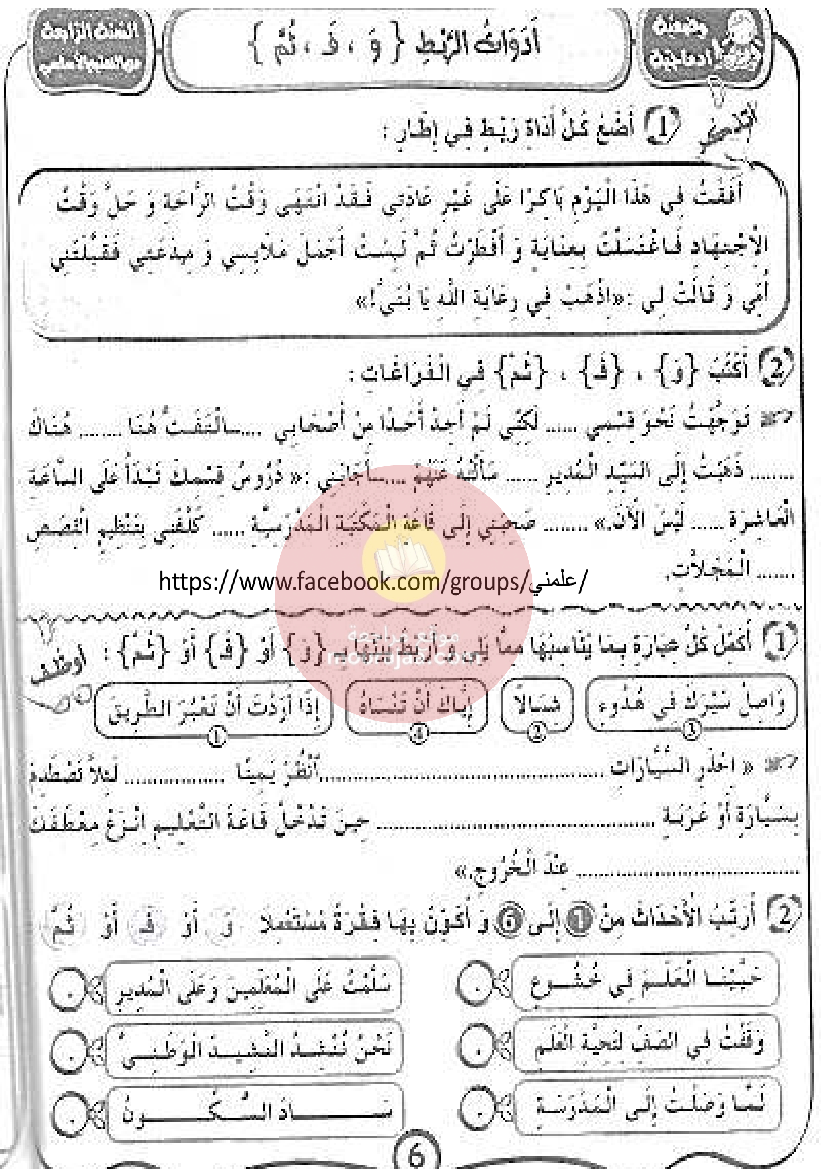 السنة الرابعة
من التعليم الأساسي
أَدَوَاتُ الرَّبْطِ { وَ ، فَـ ، ثُمَّ }
وضعية
أتذكر
1 أَضَعُ كُلَّ أَدَاةِ رَبْطٍ فِي إِطَارٍ :
أَفَقْتُ فِي هَذَا الْيَوْمِ بَاكِرًا عَلَى غَيْرِ عَادَتِي فَـقَدْ انْتَهَى وَقْتُ الرَّاحَةِ وَ حَلَّ وَقْتُ
الِاجْتِهَادِ فَـاغْتَسَلْتُ بِعِنَايَةٍ وَ أَفْطَرْتُ ثُمَّ لَبِسْتُ أَجْمَلَ مَلَابِسِي وَ مِيدَعَتِي فَقَبَّلَتْنِي
أُمِّي وَ قَالَتْ لِي :«اِذْهَبْ فِي رِعَايَةِ اللهِ يَا بُنَيَّ!»
2 أَكْتُبُ {وَ} ، {فَـ} ، {ثُمَّ} فِي الْفَرَاغَاتِ :
تَوَجَّهْتُ نَحْوَ قِسْمِي ...... لَكِنِّي لَمْ أَجِدْ أَحَدًا مِنْ أَصْحَابِي ......الْتَفَتُّ هُنَا ........ هُنَاكَ
........ ذَهَبْتُ إِلَى السَّيِّدِ الْمُدِيرِ ...... سَأَلْتُهُ عَنْهُمْ ......أَجَابَنِي :« دُرُوسُ قِسْمِكَ تَبْدَأُ عَلَى السَّاعَةِ
الْعَاشِرَةِ ...... لَيْسَ الْآنَ.» ........ صَحِبَنِي إِلَى قَاعَةِ الْمَكْتَبَةِ الْمَدْرَسِيَّةِ ...... كَلَّفَنِي بِتَنْظِيمِ الْقِصَصِ
....... الْمَجَلَّاتِ.
https://www.facebook.com/groups/علمني/
موقع مراجعة
أوظف
1 أُكْمِلُ كُلَّ عِبَارَةٍ بِمَا يُنَاسِبُهَا مِمَّا يَلِي وَ أَرْبِطُ بَيْنَهَا بِـ {وَ} أَوْ {فَـ} أَوْ {ثُمَّ} :
وَاصِلْ سَيْرَكَ فِي هُدُوءٍ 3
شِمَالًا 2
إِيَّاكَ أَنْ تَنْسَاهُ 4
إِذَا أَرَدْتَ أَنْ تَعْبُرَ الطَّرِيقَ 1
« احْذَرِ السَّيَّارَاتِ ..........................................اُنْظُرْ يَمِينًا ................ لِئَلَّا تَصْطَدِمَ
بِسَيَّارَةٍ أَوْ عَرَبَةٍ .......................................... حِينَ تَدْخُلُ قَاعَةَ التَّعْلِيمِ انْزَعْ مِعْطَفَكَ
.................................... عِنْدَ الْخُرُوجِ.»
2 أُرَتِّبُ الْأَحْدَاثَ مِنْ 1 إِلَى 6 وَ أُكَوِّنُ بِهَا فِقْرَةً مُسْتَعْمِلًا وَ أَوْ فَـ أَوْ ثُمَّ
حَيَّيْنَا الْعَلَمَ فِي خُشُوعٍ
سَلَّمْتُ عَلَى الْمُعَلِّمِينَ وَعَلَى الْمُدِيرِ
وَقَفْتُ فِي الصَّفِّ لِتَحِيَّةِ الْعَلَمِ
نَحْنُ نُنْشِدُ النَّشِيدَ الْوَطَنِيَّ
لَمَّا وَصَلْتُ إِلَى الْمَدْرَسَةِ
سَادَ السُّكُونُ
6